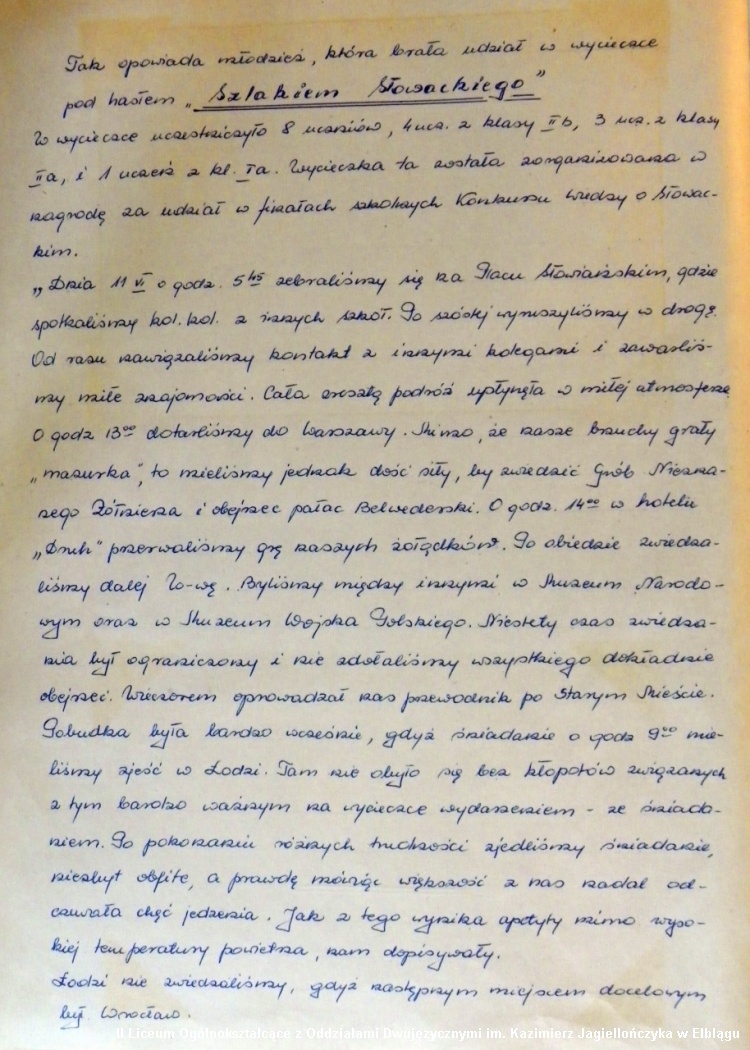 Tak opowiada młodzież, która brała udział w wycieczce
pod hasłem „Szlakiem Słowackiego”
W wycieczce uczestniczyło 8 uczniów, 4 ucz. z klasy IIb, 3 ucz. z klasy
IIa, i 1 uczeń z kl. Ia. Wycieczka ta została zorganizowana w
nagrodę za udział w finałach szkolnych Konkursu Wiedzy o Słowac-
kim.
„Dnia 11 VI o godz. 5 45 zebraliśmy się na Placu Słowiańskim, gdzie
spotkaliśmy kol. kol. z innych szkół. Po szóstej wyruszyliśmy w drogę.
Od razu nawiązaliśmy kontakt z innymi kolegami i zawarliś-
my miłe znajomości. Cała zresztą podróż upłynęła w miłej atmosferze
O godz 13 00 dotarliśmy do Warszawy. Mimo, że nasze brzuchy grały
„mazurka”, to mieliśmy jednak dość siły, by zwiedzić Grób Niezna-
nego Żołnierza i obejrzeć pałac Belwederski. O godz. 14 00 w hotelu
„Druh” przerwaliśmy grę naszych żołądków. Po obiedzie zwiedza-
liśmy dalej W-wę. Byliśmy między innymi w Muzeum Narodo-
wym oraz w Muzeum Wojska Polskiego. Niestety czas zwiedza-
nia był ograniczony i nie zdołaliśmy wszystkiego dokładnie
obejrzeć. Wieczorem oprowadzał nas przewodnik po Starym Mieście.
Pobudka była bardzo wcześnie, gdyż śniadanie o godz 9 00 mie-
liśmy zjeść w Łodzi. Tam nie obyło się bez kłopotów związanych
z tym bardzo ważnym na wycieczce wydarzeniem - ze śniada-
niem. Po pokonaniu różnych trudności zjedliśmy śniadanie,
niezbyt obfite, a prawdę mówiąc większość z nas nadal od-
czuwała chęć jedzenia. Jak z tego wynika apetyty mimo wyso-
kiej temperatury powietrza, nam dopisywały.
Łodzi nie zwiedzaliśmy, gdyż następnym miejscem docelowym
był Wrocław.
II Liceum Ogólnokształcące z Oddziałami Dwujęzycznymi im. Kazimierz Jagiellończyka w Elblągu